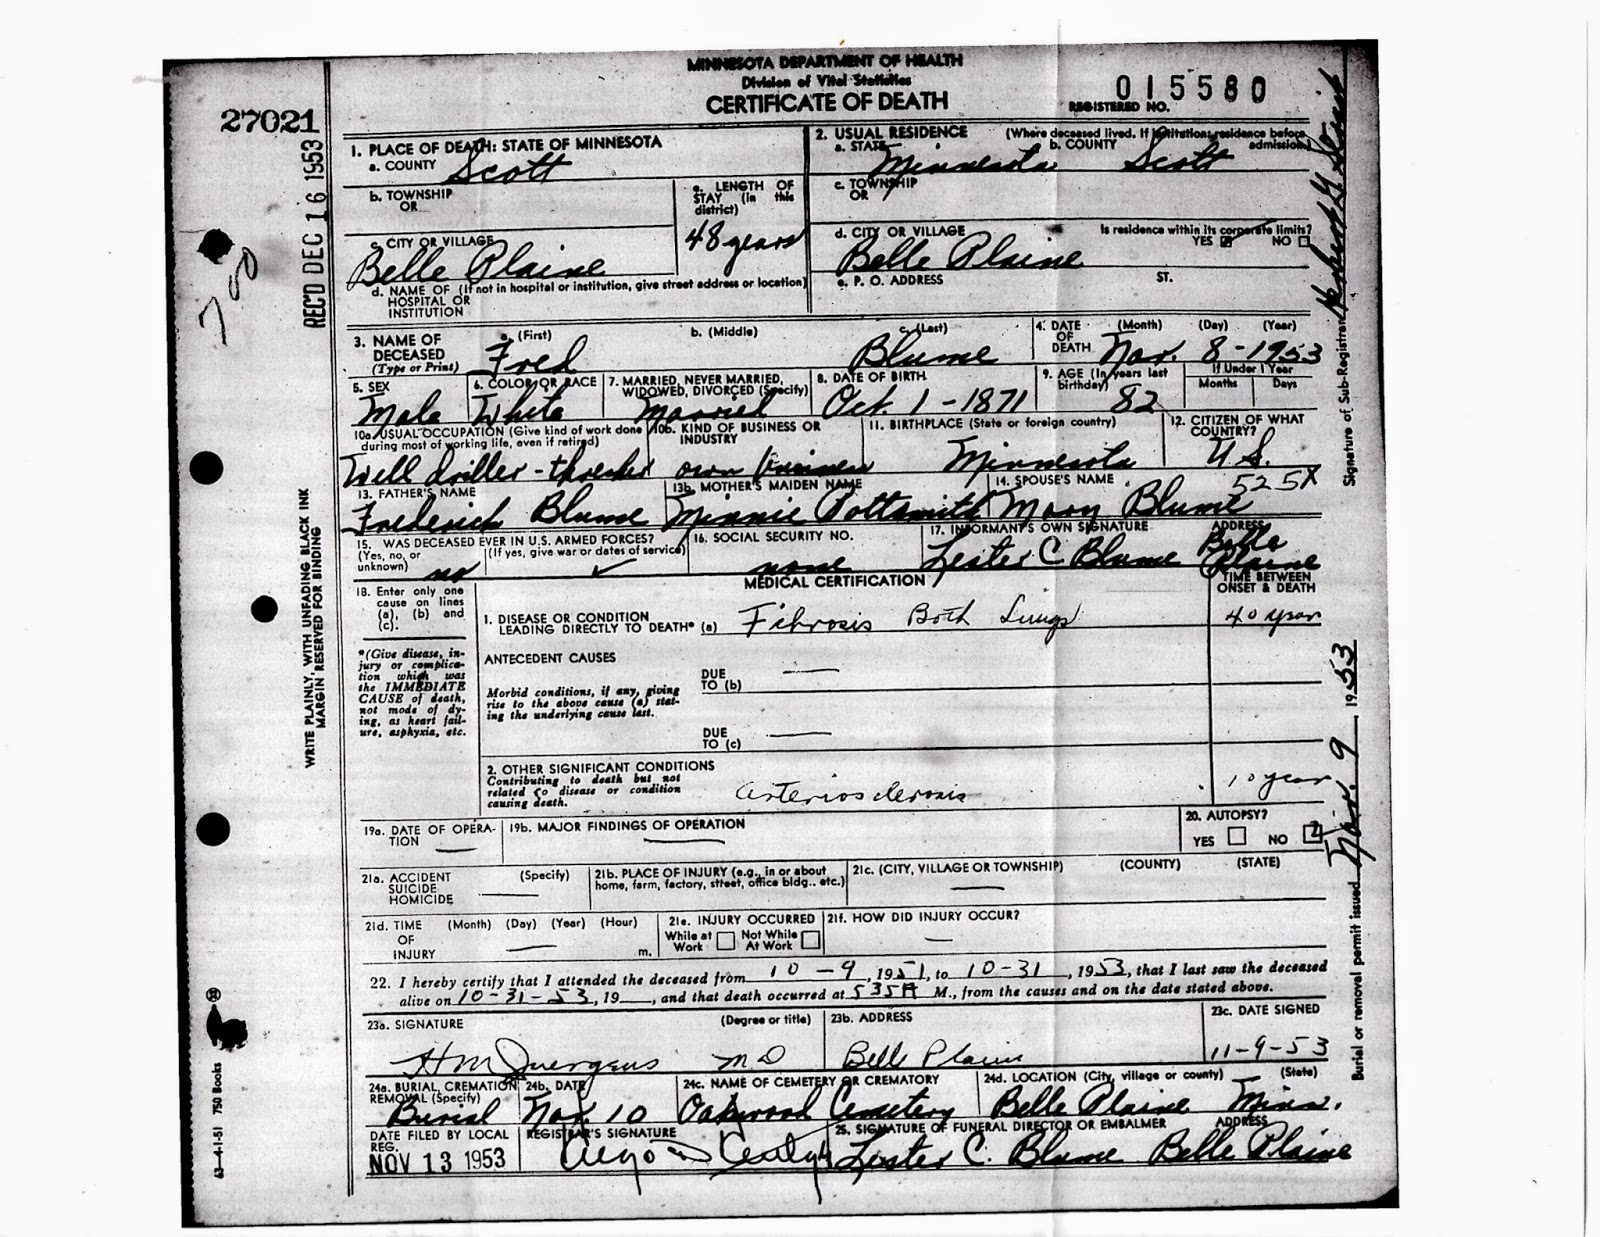 MINNESOTA DEPARTMENT OF HEALTH
Division of Vital Statistics
CERTIFICATE OF DEATH
015580
REGISTERED NO.
27021
REC'D DEC 16 1953
700
WRITE PLAINLY, WITH UNFADING BLACK INK
MARGIN RESERVED FOR BINDING
63-4-1-51 750 Books
1. PLACE OF DEATH: STATE OF MINNESOTA
a. COUNTY Scott
b. TOWNSHIP OR
e. LENGTH OF STAY (in this district)
48 years
c. CITY OR VILLAGE
Belle Plaine
d. NAME OF (If not in hospital or institution, give street address or location)
HOSPITAL OR
INSTITUTION
2. USUAL RESIDENCE (Where deceased lived. If institution: residence before admission)
a. STATE Minnesota b. COUNTY Scott
c. TOWNSHIP OR
d. CITY OR VILLAGE
Belle Plaine
Is residence within its corporate limits?
YES NO
e. P. O. ADDRESS ST.
3. NAME OF DECEASED (Type or Print)
a. (First) b. (Middle) c. (Last)
Fred Blume
4. DATE OF DEATH (Month) (Day) (Year)
Nov. 8-1953
5. SEX
Male
6. COLOR OR RACE
White
7. MARRIED, NEVER MARRIED, WIDOWED, DIVORCED (Specify)
Married
8. DATE OF BIRTH
Oct. 1-1871
9. AGE (In years last birthday)
82
If Under 1 Year
Months Days
10a. USUAL OCCUPATION (Give kind of work done during most of working life, even if retired)
Well driller - thresher
10b. KIND OF BUSINESS OR INDUSTRY
own business
11. BIRTHPLACE (State or foreign country)
Minnesota
12. CITIZEN OF WHAT COUNTRY?
U.S.
525X
13. FATHER'S NAME
Frederick Blume
13b. MOTHER'S MAIDEN NAME
Minnie Pottsmith
14. SPOUSE'S NAME
Mary Blume
15. WAS DECEASED EVER IN U.S. ARMED FORCES?
(Yes, no, or unknown) (If yes, give war or dates of service)
no
16. SOCIAL SECURITY NO.
none
17. INFORMANT'S OWN SIGNATURE ADDRESS
Lester C Blume Belle Plaine
MEDICAL CERTIFICATION
TIME BETWEEN ONSET & DEATH
18. Enter only one cause on lines (a), (b) and (c).
*(Give disease, injury or complication which was the IMMEDIATE CAUSE of death, not mode of dying, as heart failure, asphyxia, etc.
1. DISEASE OR CONDITION
LEADING DIRECTLY TO DEATH* (a) Fibrosis Both Lungs 40 year
ANTECEDENT CAUSES
Morbid conditions, if any, giving rise to the above cause (a) stating the underlying cause last.
DUE TO (b)
DUE TO (c)
2. OTHER SIGNIFICANT CONDITIONS
Contributing to death but not related to disease or condition causing death.
Arteriosclerosis 10 year
19a. DATE OF OPERATION
19b. MAJOR FINDINGS OF OPERATION
20. AUTOPSY?
YES NO
21a. ACCIDENT (Specify)
SUICIDE
HOMICIDE
21b. PLACE OF INJURY (e.g., in or about home, farm, factory, street, office bldg., etc.)
21c. (CITY, VILLAGE OR TOWNSHIP) (COUNTY) (STATE)
21d. TIME OF INJURY (Month) (Day) (Year) (Hour) m.
21e. INJURY OCCURRED
While at Work Not While At Work
21f. HOW DID INJURY OCCUR?
22. I hereby certify that I attended the deceased from 10-9, 1951, to 10-31, 1953, that I last saw the deceased
alive on 10-31-53, 19 , and that death occurred at 535A M., from the causes and on the date stated above.
23a. SIGNATURE (Degree or title)
HM Juergens MD
23b. ADDRESS
Belle Plaine
23c. DATE SIGNED
11-9-53
24a. BURIAL, CREMATION REMOVAL (Specify)
Burial
24b. DATE
Nov. 10
24c. NAME OF CEMETERY OR CREMATORY
Oakwood Cemetery
24d. LOCATION (City, village or county) (State)
Belle Plaine Minn.
DATE FILED BY LOCAL REG.
NOV 13 1953
REGISTRAR'S SIGNATURE
25. SIGNATURE OF FUNERAL DIRECTOR OR EMBALMER ADDRESS
Lester C. Blume Belle Plaine
Burial or removal permit issued Nov. 9 1953
Signature of Sub-Registrar